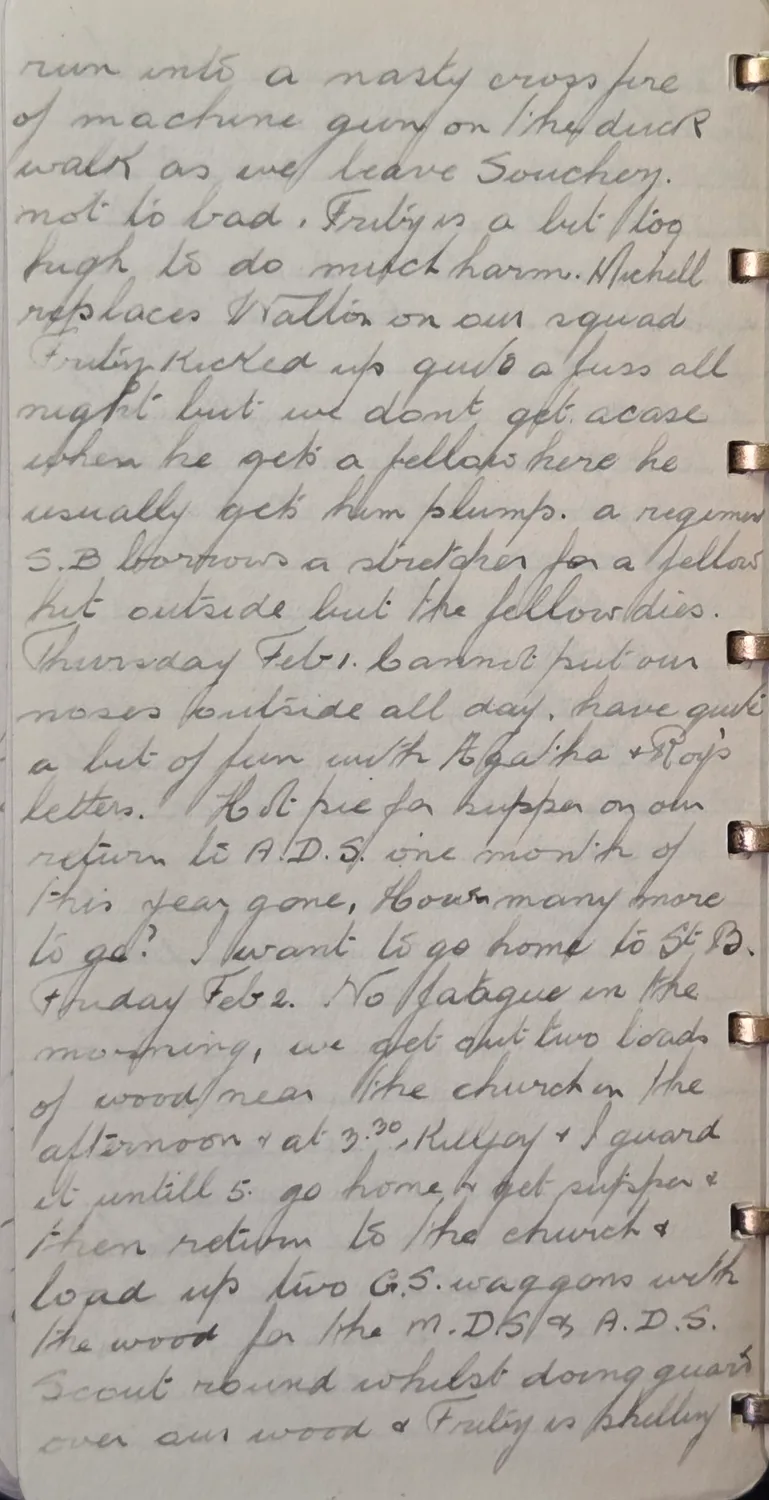 run into a nasty cross fire
of machine gun on the duck
walk as we leave Souchey.
not to bad. Frity is a bit too
high to do much harm. Michell
replaces Watton on our squad
Frity kicked up quite a fuss all
night but we dont get a case
when he gets a fellow here he
usually gets him plump. a regimen
S.B borrows a stretcher for a fellow
hit outside but the fellow dies.
Thursday Feb 1. Cannot put our
noses outside all day. have quite
a bit of fun with Agatha & Roy's
letters. Hot pie for supper on our
return to A.D.S. one month of
this year gone, How many more
to go? I want to go home to St B.
Friday Feb 2. No fatigue in the
morning, we get out two loads
of wood near the church in the
afternoon & at 3.30, Killjoy & I guard
it untill 5. go home & get supper &
then return to the church &
load up two G.S. waggons with
the wood for the M.D.S & A.D.S.
Scout round whilst doing guard
over our wood & Frity is shelling